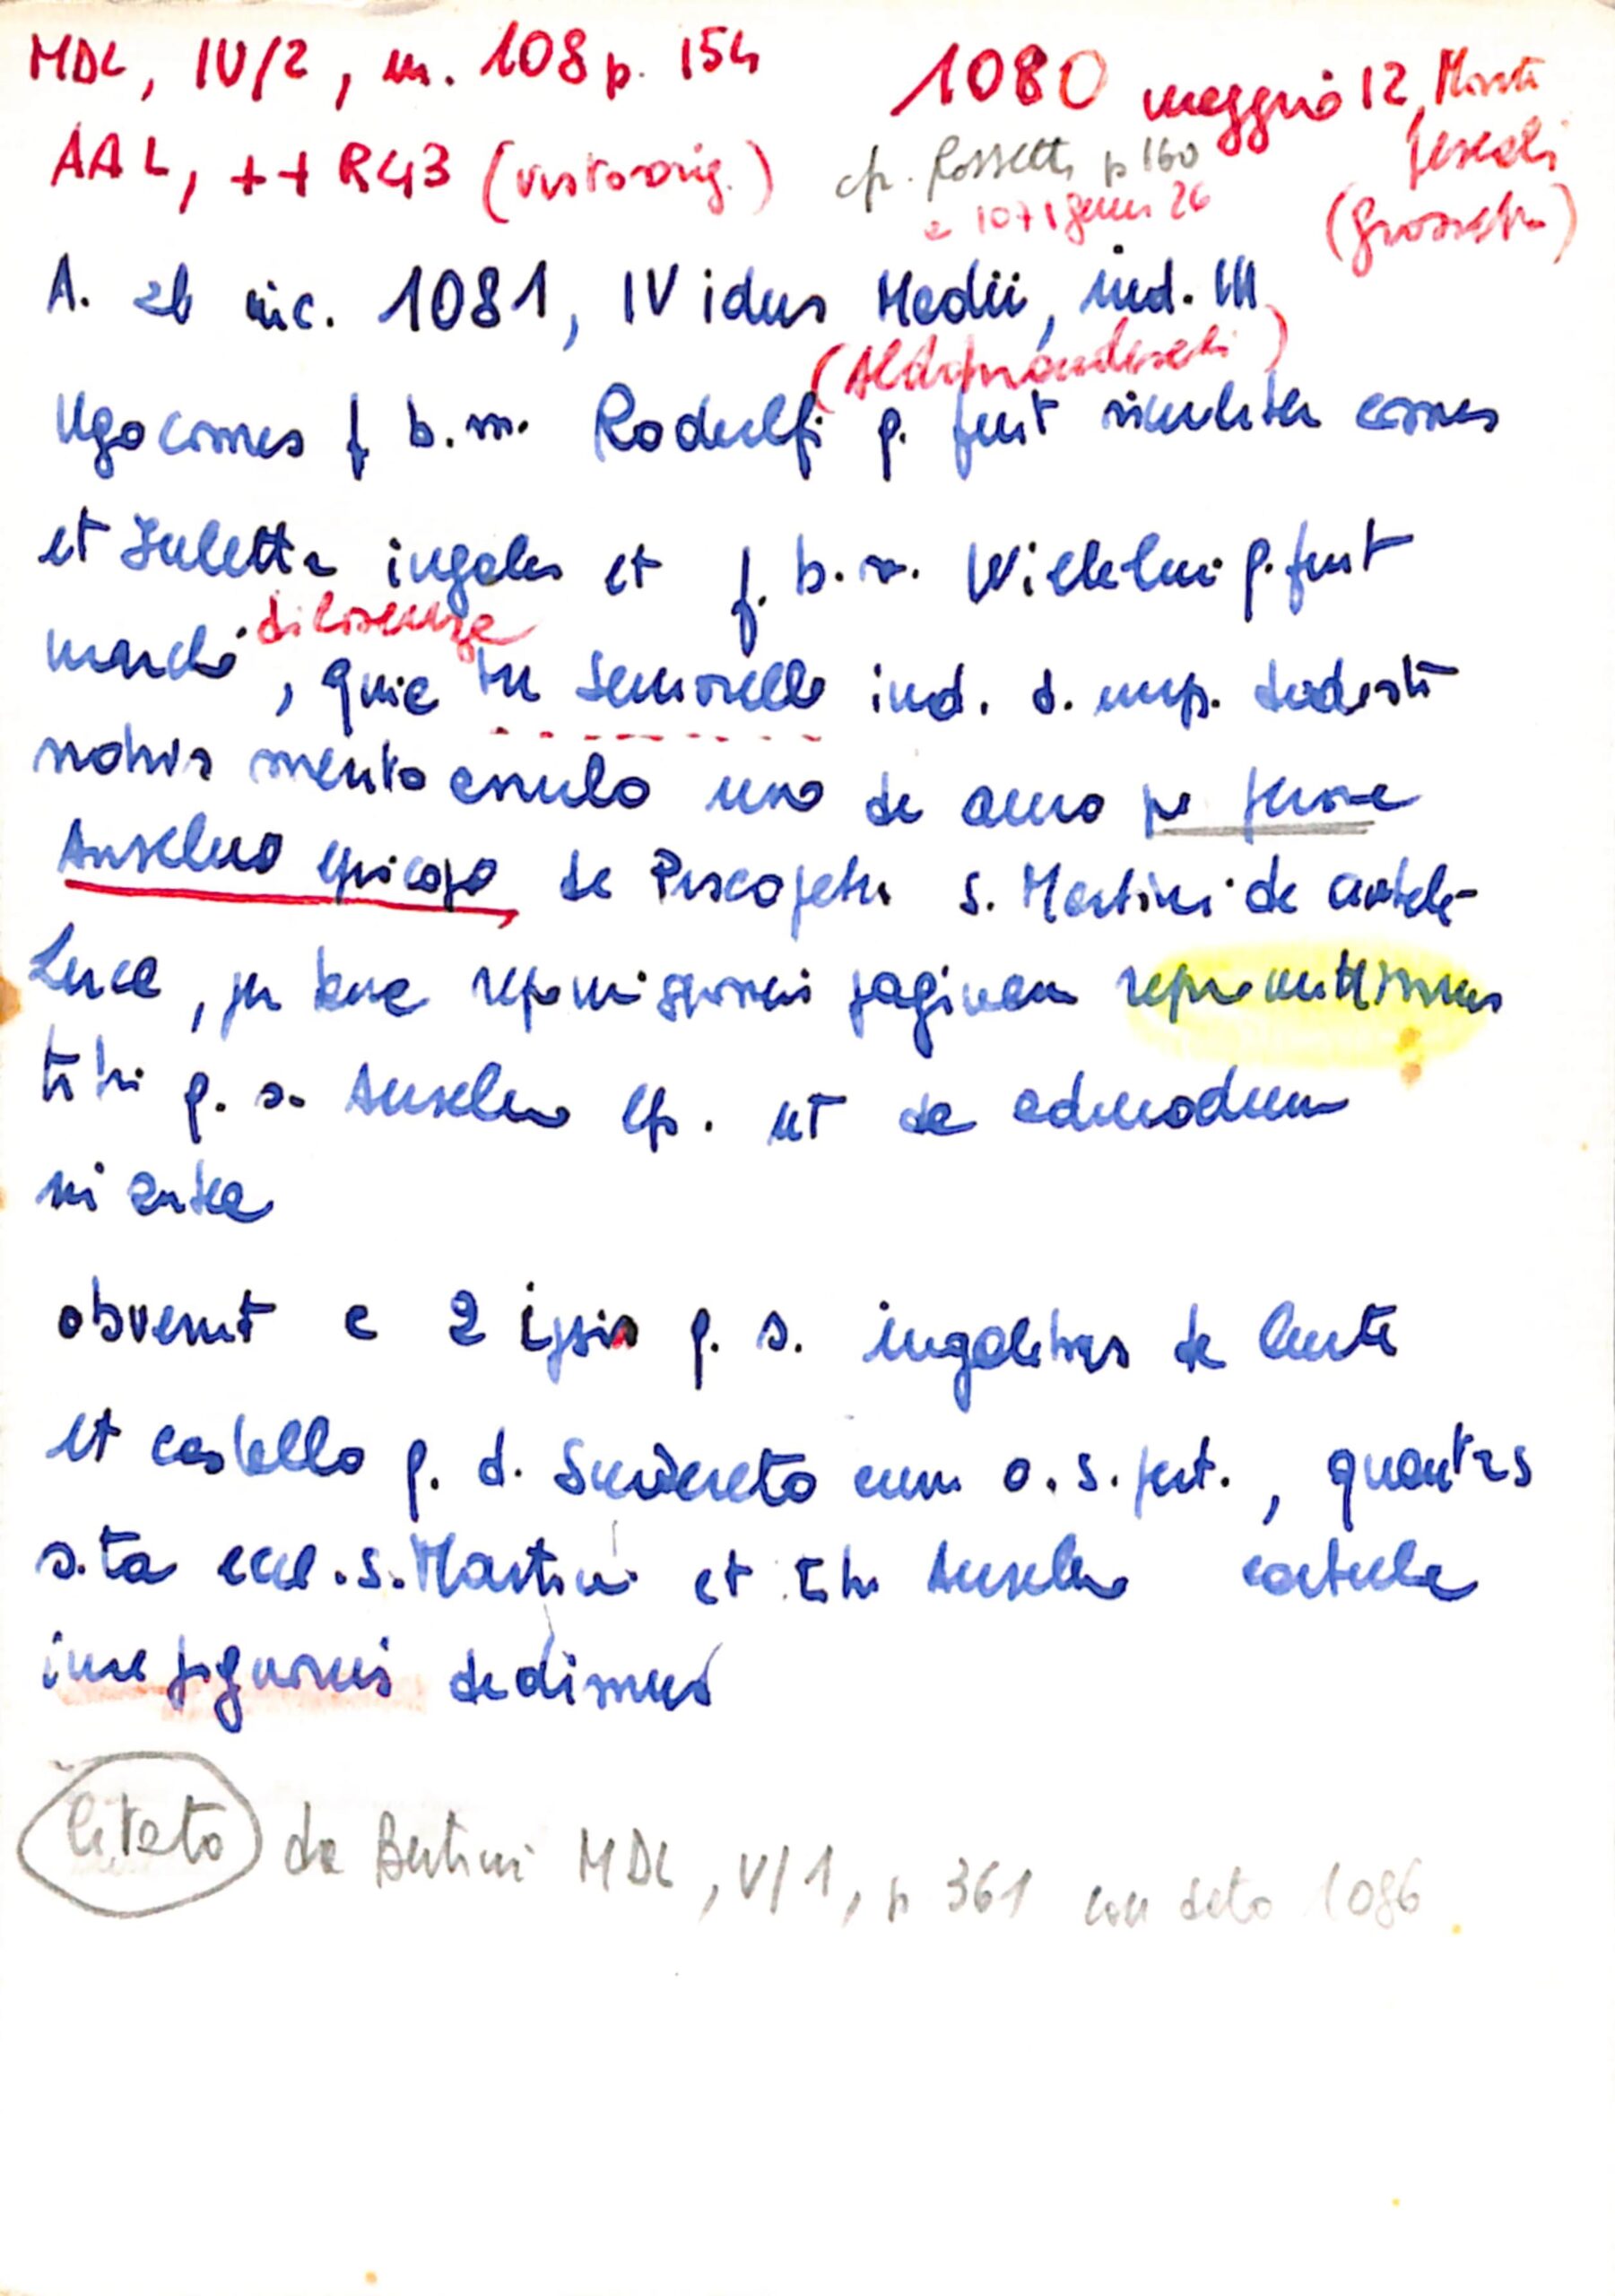 MDL, IV/2, n. 108 p. 154
1080 maggio 12, Monte
pescali
(Grosseto)
AAL, ++ R43 (visto orig.)
cfr. Rossetti p 160
e 1071 genn 26
A. ab inc. 1081, IV idus Madii, ind. III
(Aldobrandeschi)
Ugo comes f b.m. Rodulfi q. fuit similiter comes
et Juletta iugales et f. b. m. Wilielmi q. fuit
di Cosenza
march, quia tu Semorello ind. d. imp. dedisti
nobis merito anulo uno de auro pro persona
Anselmo episcopo de Piscopatu S. Martini de civitate
Luca, per hanc repromissionis paginam repromittimus
tibi q. s. Anselmo ep. ut de admodum
si antea
obvenit e 2 ipsis q. s. iugalibus de curte
et castello q. d. Suvereto cum o. s. pert., quantas
s.ta eccl. s. Martini et tibi Anselmo cartula
iure pignoris dedimus
Citato da Bertini MDL, V/1, p 361 con data 1086